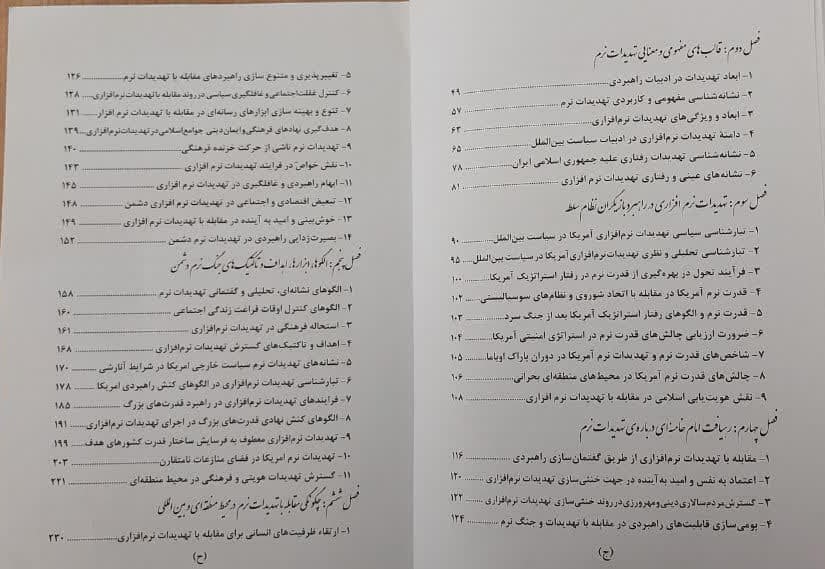 فصل دوم: قالب‌های مفهومی و معنایی تهدیدات نرم
۱- ابعاد تهدیدات در ادبیات راهبردی ۴۹
۲- نشانه‌شناسی مفهومی و کاربردی تهدیدات نرم ۵۷
۳- ابعاد و ویژگی‌های تهدیدات نرم‌افزاری ۶۳
۴- دامنهٔ تهدیدات نرم‌افزاری در ادبیات سیاست بین‌الملل ۶۵
۵- نشانه‌شناسی تهدیدات رفتاری علیه جمهوری اسلامی ایران ۷۸
۶- نشانه‌های عینی و رفتاری تهدیدات نرم افزاری ۸۱
فصل سوم: تهدیدات نرم افزاری در راهبرد بازیگران نظام سلطه
۱- تبارشناسی سیاسی تهدیدات نرم‌افزاری آمریکا در سیاست بین‌الملل ۹۰
۲- تبارشناسی تحلیلی و نظری تهدیدات نرم‌افزاری آمریکا در سیاست بین‌الملل ۹۵
۳- فرآیند تحول در بهره‌گیری از قدرت نرم در رفتار استراتژیک آمریکا ۱۰۰
۴- قدرت نرم آمریکا در مقابله با اتحاد شوروی و نظام‌های سوسیالیستی ۱۰۲
۵- قدرت نرم و الگوهای رفتار استراتژیک آمریکا بعد از جنگ سرد ۱۰۳
۶- ضرورت ارزیابی چالش‌های قدرت نرم در استراتژی امنیتی آمریکا ۱۰۴
۷- شاخص‌های قدرت نرم و تهدیدات نرم آمریکا در دوران باراک اوباما ۱۰۵
۸- چالش‌های قدرت نرم آمریکا در محیط‌های منطقه‌ای بحرانی ۱۰۶
۹- نقش هویت‌یابی اسلامی در مقابله با تهدیدات نرم افزاری ۱۰۸
فصل چهارم: رهیافت امام خامنه‌ای درباره‌ی تهدیدات نرم
۱- مقابله با تهدیدات نرم‌افزاری از طریق گفتمان‌سازی راهبردی ۱۱۶
۲- اعتماد به نفس و امید به آینده در جهت خنثی‌سازی تهدیدات نرم‌افزاری ۱۲۰
۳- گسترش مردم سالاری دینی و مهرورزی در روند خنثی‌سازی تهدیدات نرم‌افزاری ۱۲۲
۴- بومی‌سازی قابلیت‌های راهبردی در مقابله با تهدیدات و جنگ نرم ۱۲۴
(ج)
۵- تغییرپذیری و متنوع سازی راهبردهای مقابله با تهدیدات نرم ۱۲۶
۶- کنترل غفلت اجتماعی و غافلگیری سیاسی در روند مقابله با تهدیدات نرم‌افزاری ۱۲۸
۷- تنوع و بهینه سازی ابزارهای رسانه‌ای در مقابله با تهدیدات نرم افزار ۱۳۱
۸- هدف‌گیری نهادهای فرهنگی و ایمان دینی جوامع اسلامی در تهدیدات نرم‌افزاری ۱۳۹
۹- تهدیدات نرم ناشی از حرکت خزنده فرهنگی ۱۴۰
۱۰- نقش خواص در فرایند تهدیدات نرم افزاری ۱۴۳
۱۱- ابهام راهبردی و غافلگیری در تهدیدات نرم افزاری ۱۴۵
۱۲- تبعیض اقتصادی و اجتماعی در تهدیدات نرم افزاری دشمن ۱۴۸
۱۳- خوش‌بینی و امید به آینده در مقابله با تهدیدات نرم افزاری ۱۴۹
۱۴- بصیرت‌زدایی راهبردی در تهدیدات نرم دشمن ۱۵۲
فصل پنجم: الگوها، ابزارها، اهداف و تاکتیک‌های جنگ نرم دشمن
۱- الگوهای نشانه‌ای، تحلیلی و گفتمانی تهدیدات نرم ۱۵۸
۲- الگوهای کنترل اوقات فراغت زندگی اجتماعی ۱۶۰
۳- استحاله فرهنگی در تهدیدات نرم‌افزاری ۱۶۱
۴- اهداف و تاکتیک‌های گسترش تهدیدات نرم‌افزاری ۱۶۸
۵- نشانه‌های تهدیدات نرم سیاست خارجی امریکا در شرایط آنارشی ۱۷۰
۶- تبارشناسی تهدیدات نرم‌افزاری در الگوهای کنش راهبردی امریکا ۱۷۸
۷- فرایندهای تهدیدات نرم‌افزاری در راهبرد قدرت‌های بزرگ ۱۸۵
۸- الگوهای کنش نهادی قدرت‌های بزرگ در اجرای تهدیدات نرم‌افزاری ۱۹۱
۹- تهدیدات نرم‌افزاری معطوف به فرسایش ساختار قدرت کشورهای هدف ۱۹۹
۱۰- تهدیدات نرم امریکا در فضای منازعات نامتقارن ۲۰۳
۱۱- گسترش تهدیدات هویتی و فرهنگی در محیط منطقه‌ای ۲۲۱
فصل ششم: چگونگی مقابله با تهدیدات نرم در محیط منطقه ای و بین المللی
۱- ارتقاء ظرفیت‌های انسانی برای مقابله با تهدیدات نرم‌افزاری ۲۳۰
(ح)